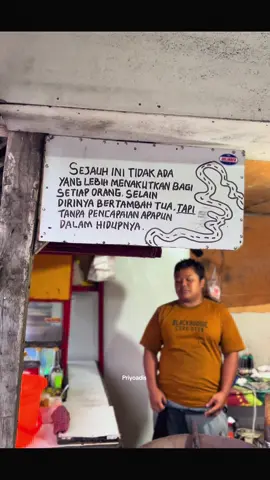 SEJAUH INI TIDAK ADA
YANG LEBIH MENAKUTKAN BAGI
SETIAP ORANG. SELAIN
DIRINYA BERTAMBAH TUA, TAPI
TANPA PENCAPAIAN APAPUN
DALAM HIDUPNYA.
Priyoadie